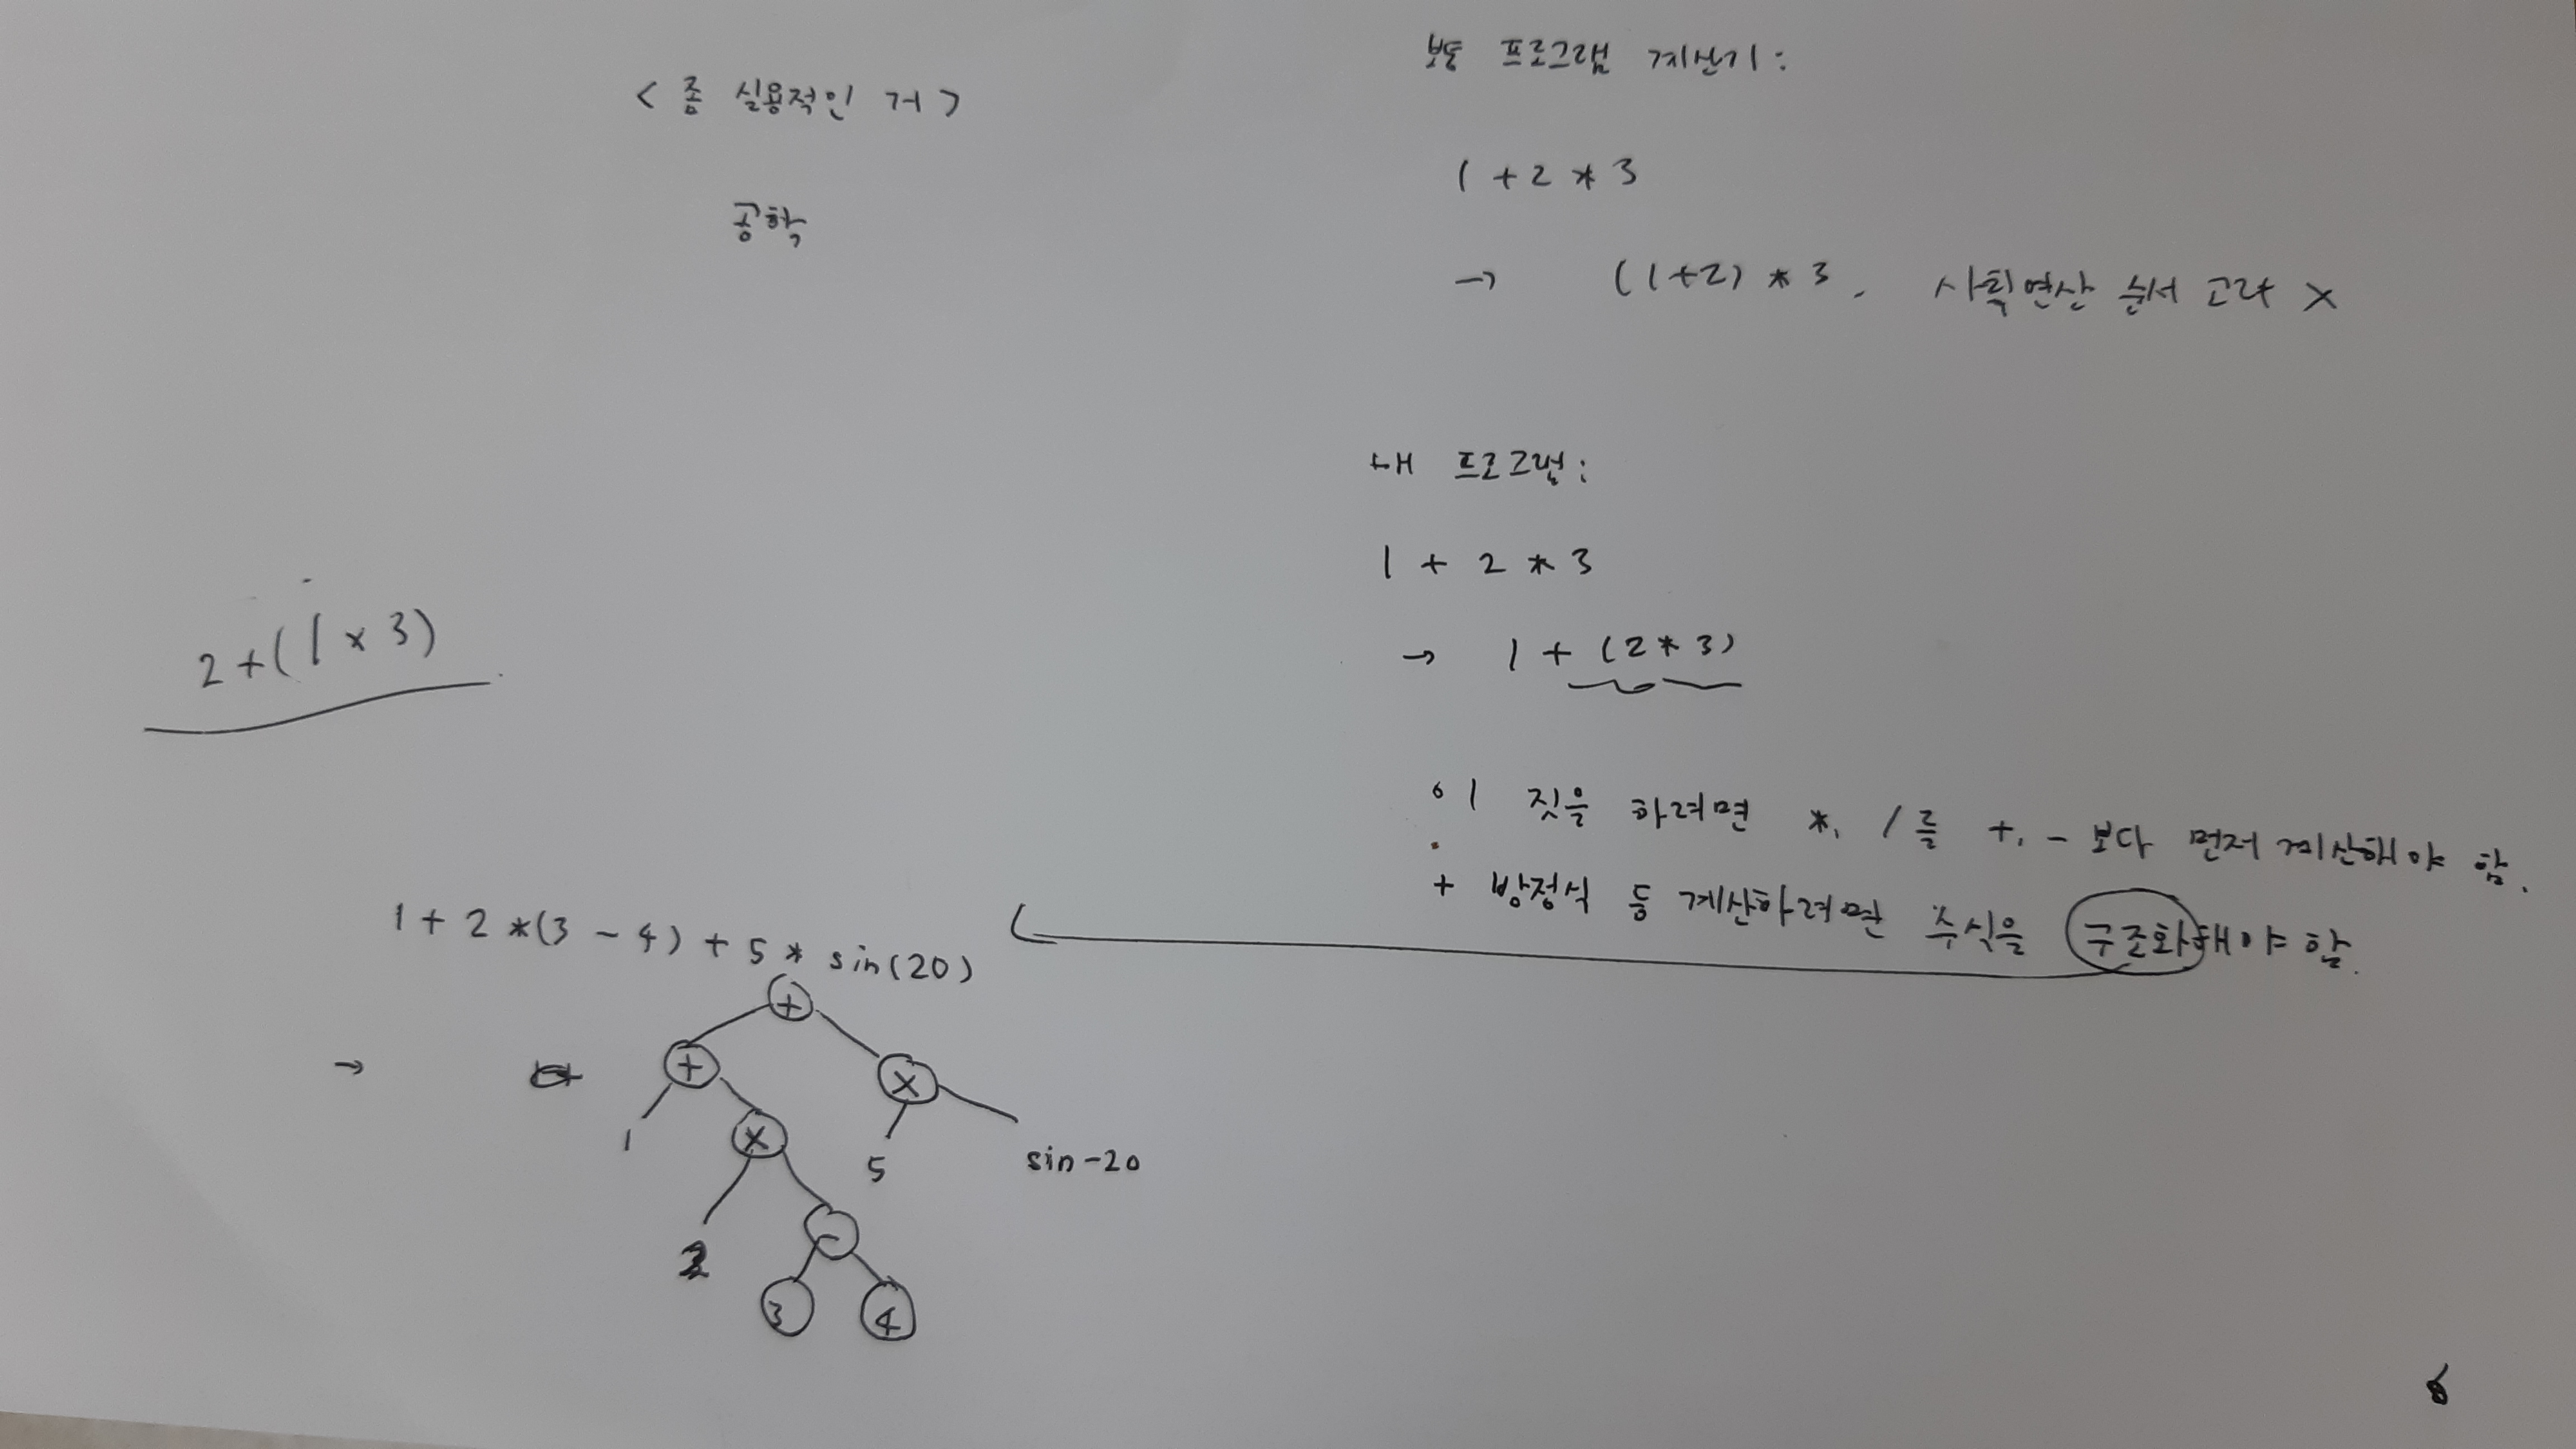 < 좀 실용적인 거 >
공학
보통 프로그램 계산기 :
1 + 2 * 3
→ (1+2) * 3 , 사칙연산 순서 고려 X
내 프로그램 :
1 + 2 * 3
→ 1 + (2 * 3)
2 + (1 x 3)
이 짓을 하려면 *, / 를 +, - 보다 먼저 계산해야 함.
+ 방정식 등 계산하려면 수식을 구조화해야 함.
1 + 2 * (3 - 4) + 5 * sin(20)
→
+
+
x
1
x
5
sin-20
2
-
3
4